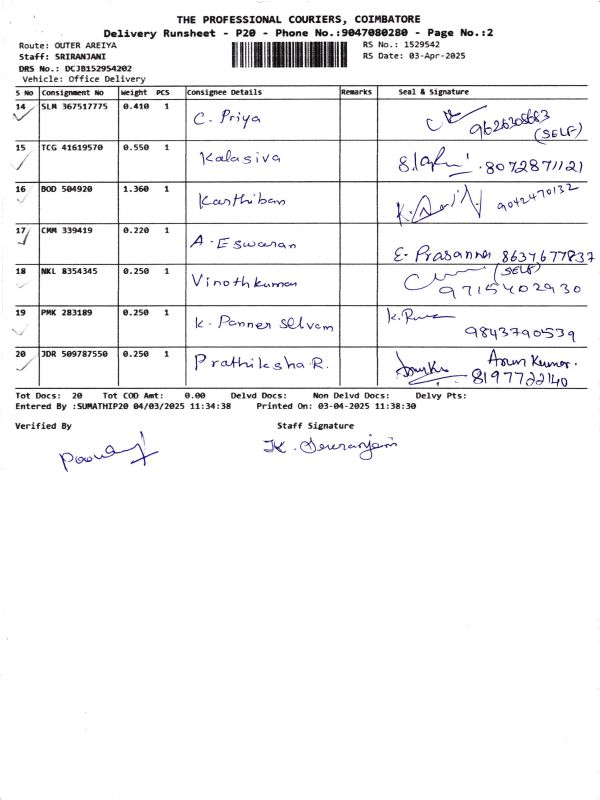 THE PROFESSIONAL COURIERS, COIMBATORE
Delivery Runsheet - P20 - Phone No.:9047080280 - Page No.:2
Route: OUTER AREIYA RS No.: 1529542
Staff: SRIRANJANI RS Date: 03-Apr-2025
DRS No.: DCJB152954202
Vehicle: Office Delivery
S No Consignment No Weight PCS Consignee Details Remarks Seal & Signature
14 SLM 367517775 0.410 1 C. Priya (SELF)
15 TCG 41619570 0.550 1 Kalasiva 8072871121
16 BOD 504920 1.360 1 Karthiban 9042470132
17 CMM 339419 0.220 1 A. Eswaran E. Prasanna 8637677837
18 NKL 8354345 0.250 1 Vinothkumar (SELF) 9715402930
19 PMK 283189 0.250 1 K. Panner Selvam 9843790539
20 JDR 509787550 0.250 1 Prathiksha.R. Arun Kumar. 8197722140
Tot Docs: 20 Tot COD Amt: 0.00 Delvd Docs: Non Delvd Docs: Delvy Pts:
Entered By :SUMATHIP20 04/03/2025 11:34:38 Printed On: 03-04-2025 11:38:30
Verified By Staff Signature